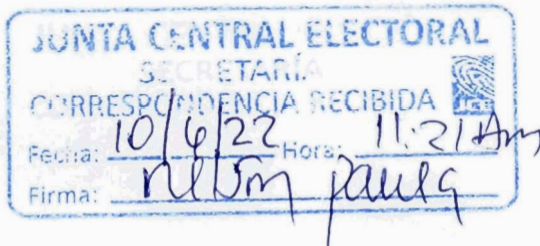 JUNTA CENTRAL ELECTORAL
SECRETARÍA
CORRESPONDENCIA RECIBIDA JCE
Fecha: 10/6/22 Hora: 11:21 Am
Firma: